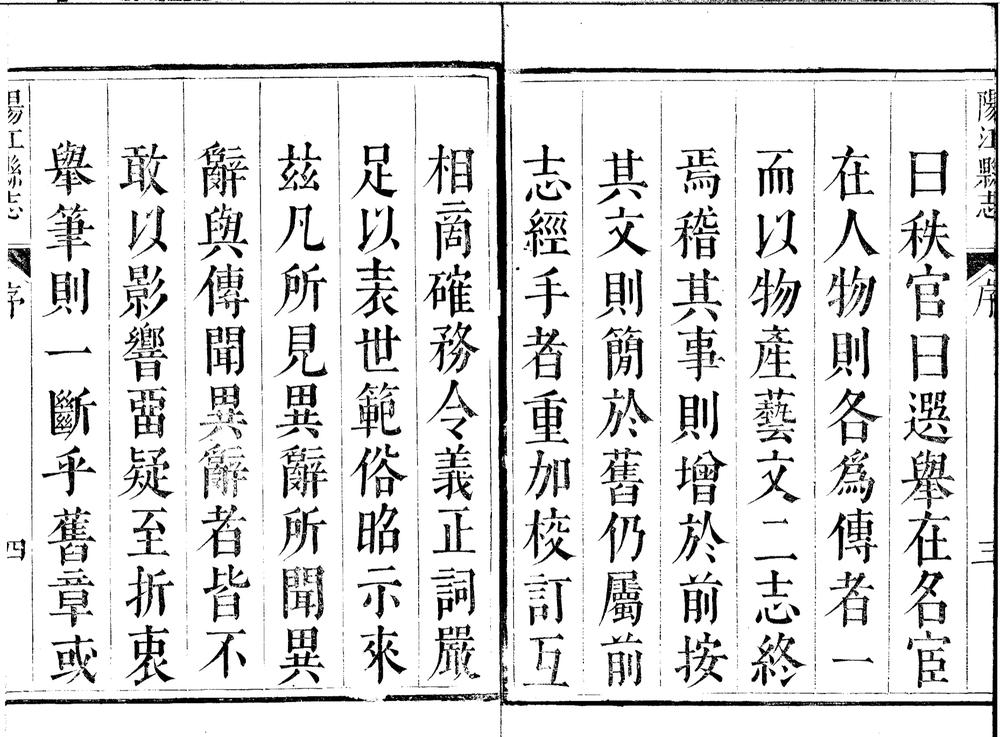 陽江縣志
序
三
曰秩官曰選舉在名宦
在人物則各爲傳者一
而以物產藝文二志終
焉稽其事則增於前按
其文則簡於舊仍屬前
志經手者重加校訂互
相商確務令義正詞嚴
足以表世範俗昭示來
茲凡所見異辭所聞異
辭與傳聞異辭者皆不
敢以影響畱疑至折衷
舉筆則一斷乎舊章或
陽江縣志
序
四